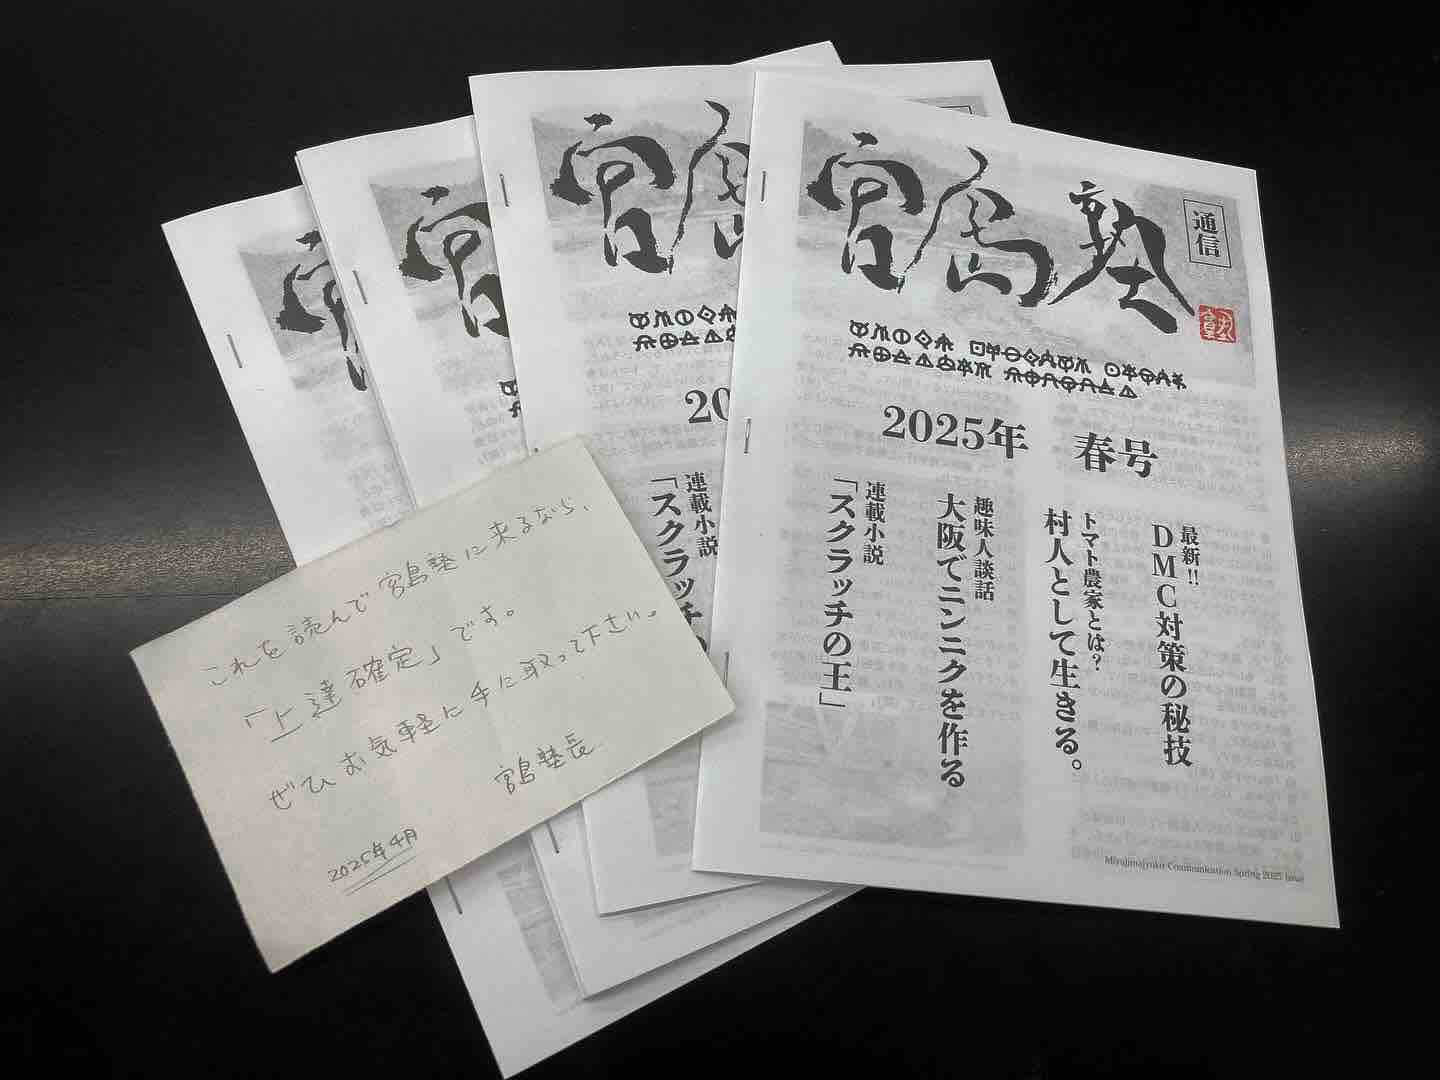 宮島塾
通信
2025年 春号
最新!!
DMC対策の秘技
トマト農家とは？
村人として生きる。
趣味人談話
大阪でニンニクを作る
連載小説
「スクラッチの王」
Miyajimajyuku Communication Spring 2025 issue
宮島
20
連載小説
「スクラッチの
宮
これを読んで宮島塾に来るなら、
「上達確定」です。
ぜひお気軽に手に取って下さい。
宮島塾長
2025年4月